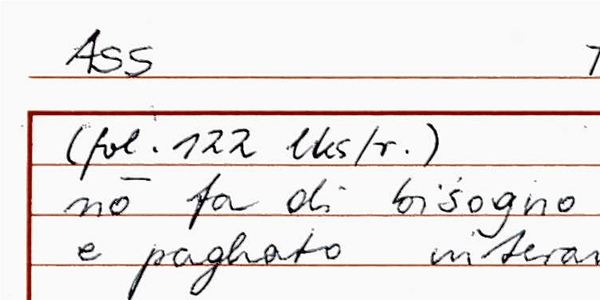 Ass
(fol. 122 lks/r.)
nō fa di bisogno
e paghato interam